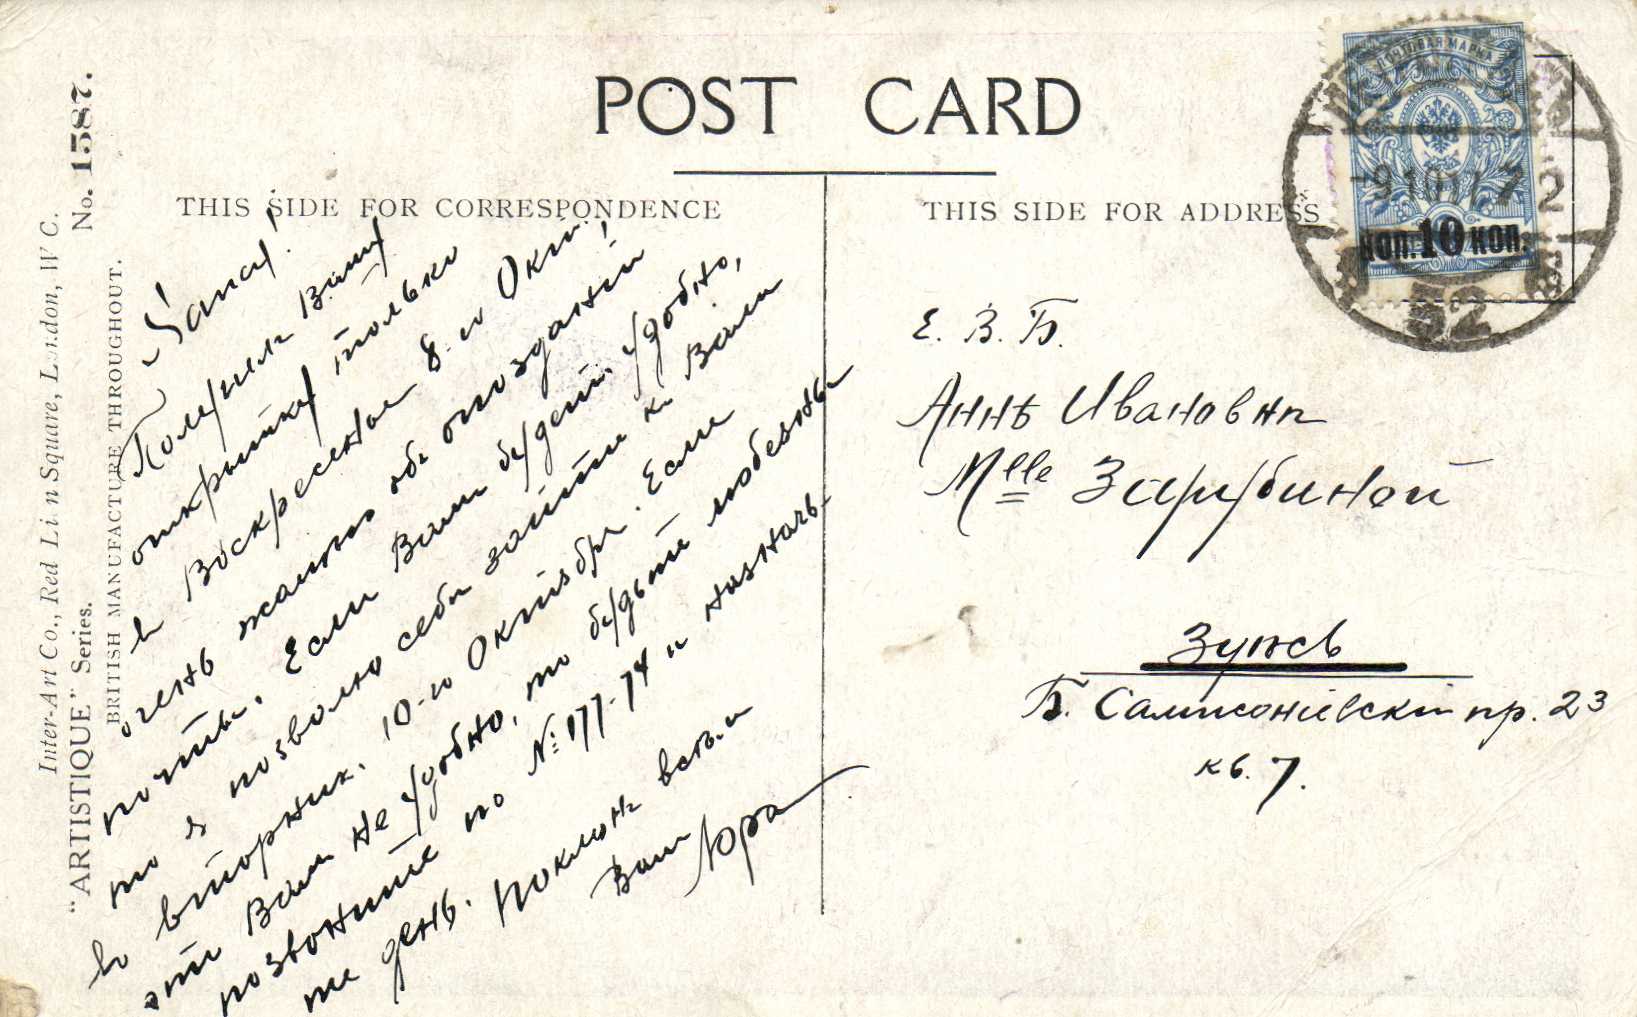 POST CARD
THIS SIDE FOR CORRESPONDENCE
THIS SIDE FOR ADDRESS
Inter-Art Co., Red Lion Square, London, W C.
"ARTISTIQUE" Series.
No. 1587.
BRITISH MANUFACTURE THROUGHOUT.
ПОЧТОВАЯ МАРКА
КОП. 10 КОП.
9 10 17
32
Получилъ Вашу
открытку только
въ Воскресенье 8-го Окт.,
очень жалѣю объ опозданіи
почты. Если Вамъ будетъ удобно,
то я позволю себѣ зайти къ Вамъ
во вторникъ. 10-го Октября. Если
это Вамъ не удобно, то будьте любезны
позвоните по № 177-74 и назначь-
те день. Поклонъ всѣмъ
Вашъ
Е. В. Б.
Аннѣ Ивановнѣ
Mlle Зарубиной
Здѣсь
Б. Сампсоніевскій пр. 23
кв. 7.